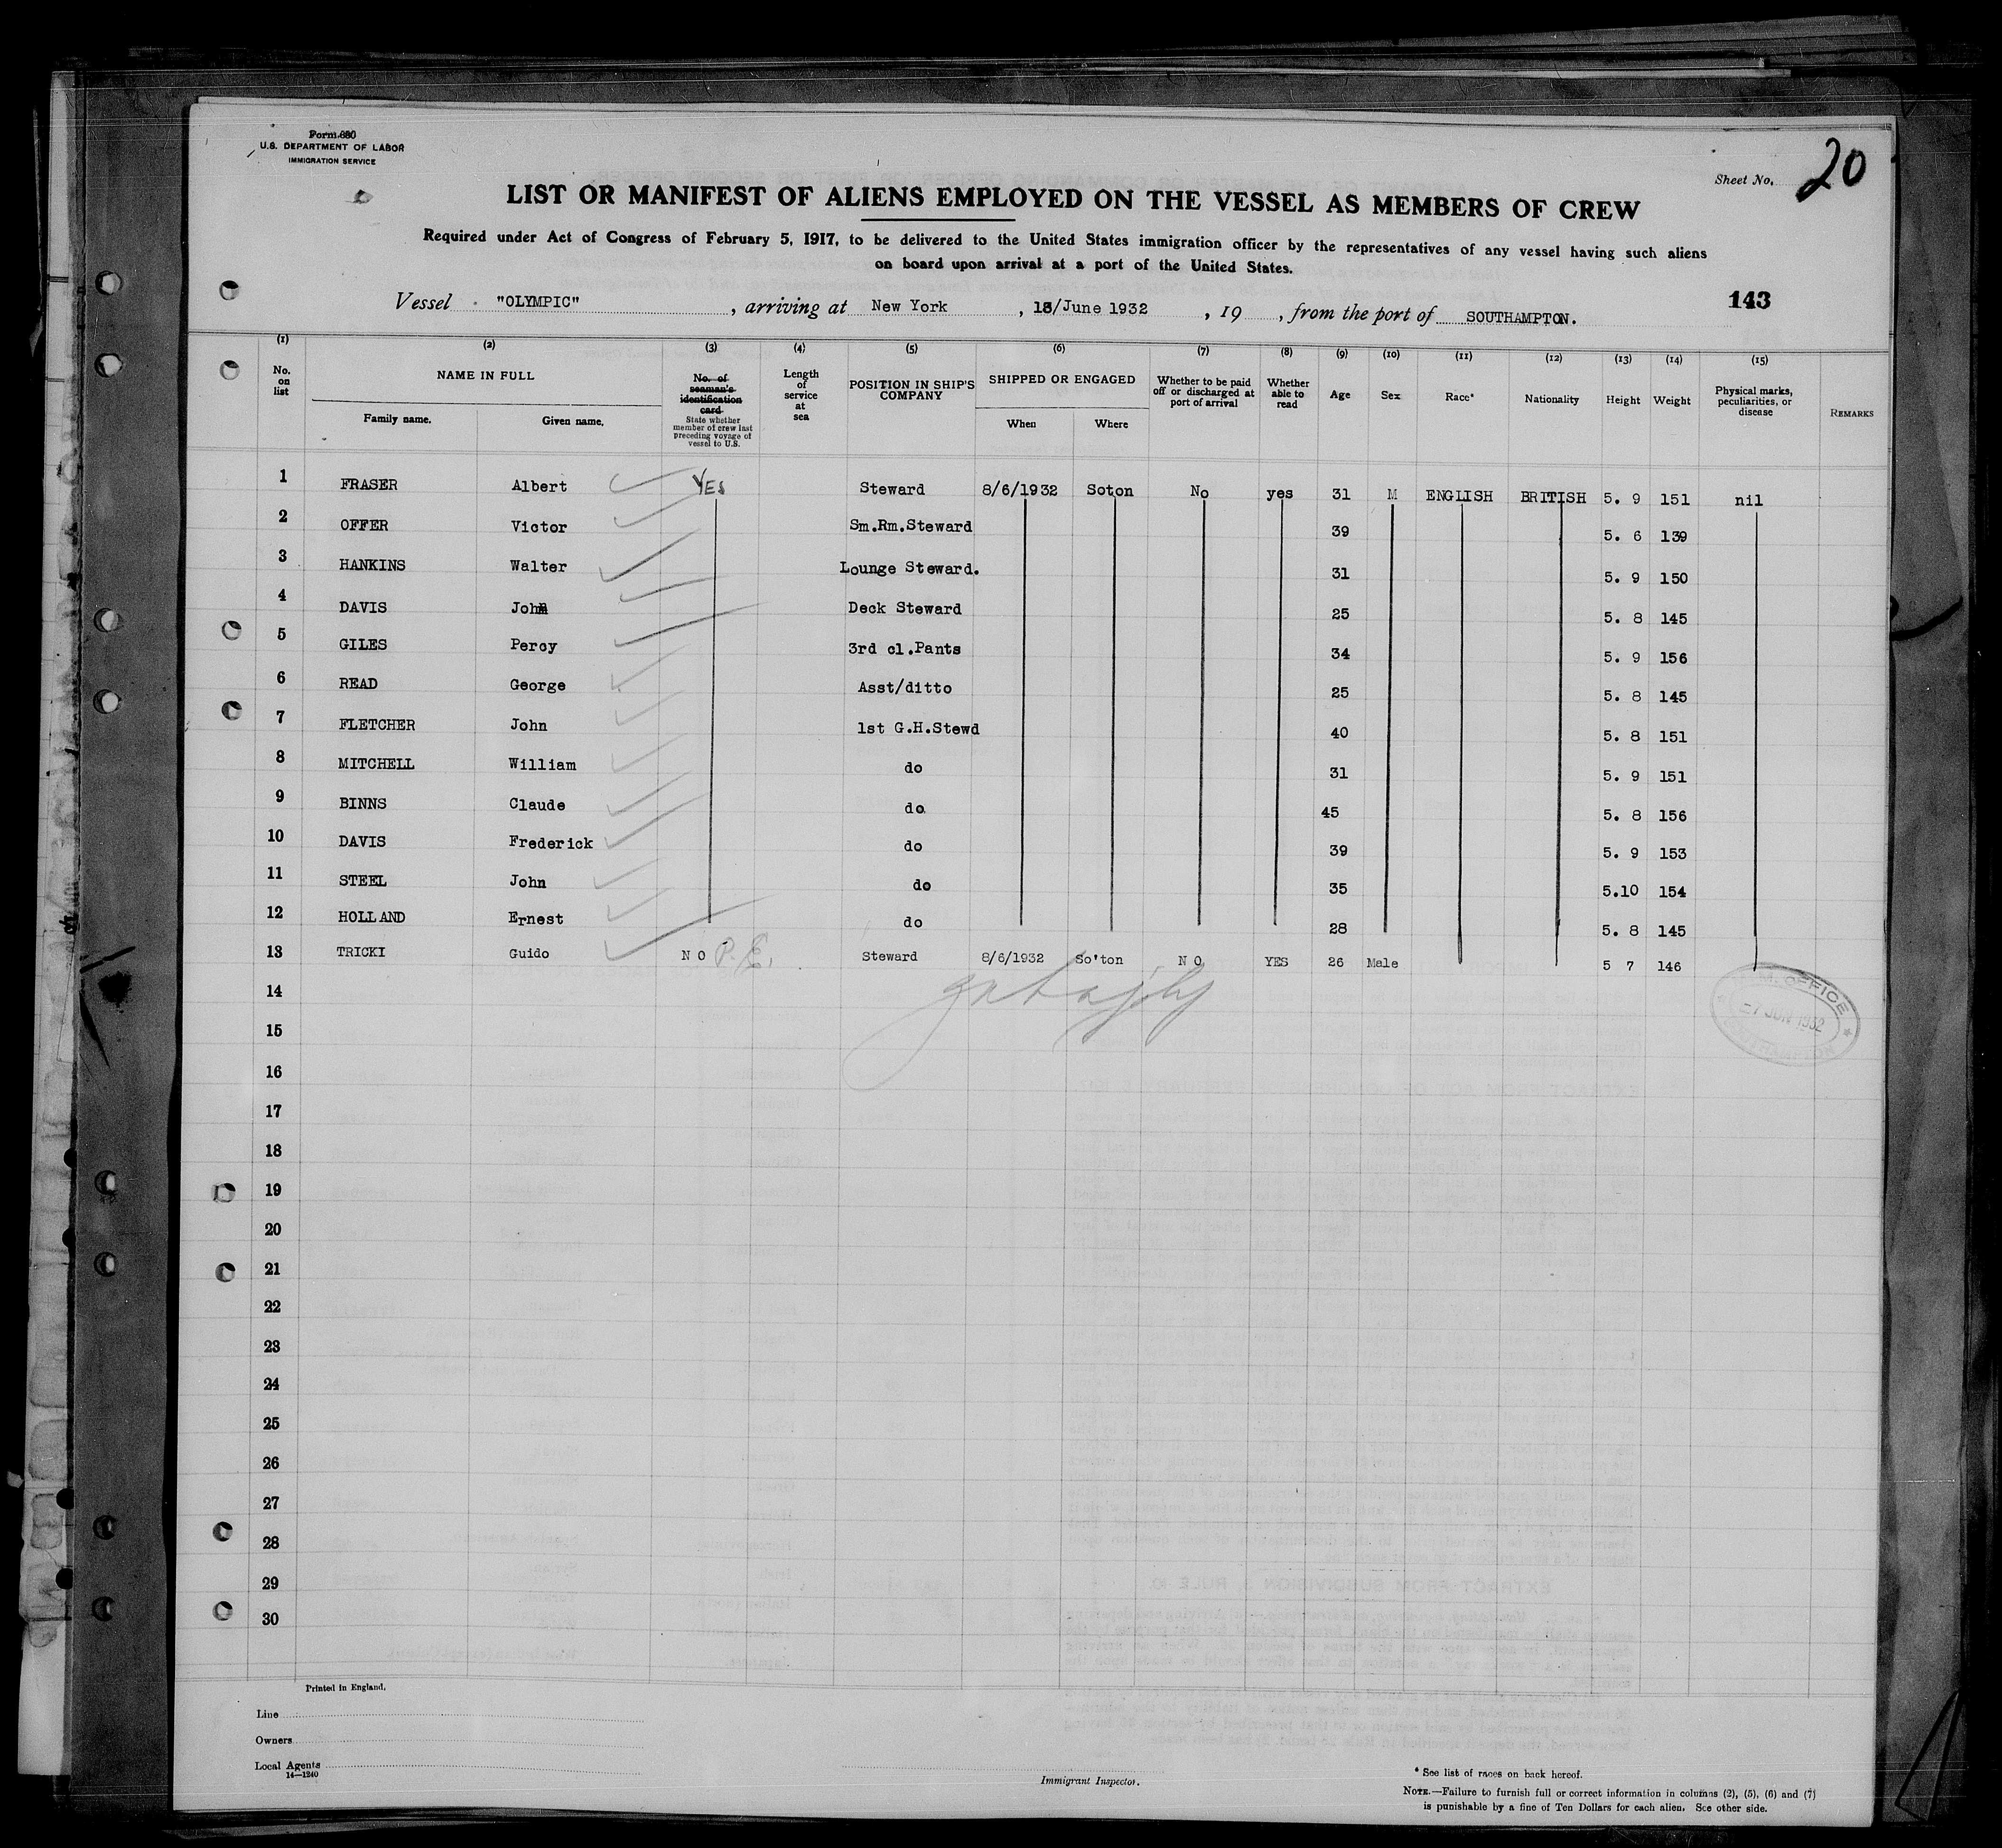 Form 680
U.S. DEPARTMENT OF LABOR
IMMIGRATION SERVICE
Sheet No. 20
LIST OR MANIFEST OF ALIENS EMPLOYED ON THE VESSEL AS MEMBERS OF CREW
Required under Act of Congress of February 5, 1917, to be delivered to the United States immigration officer by the representatives of any vessel having such aliens
on board upon arrival at a port of the United States.
143
Vessel "OLYMPIC", arriving at New York, 18/June 1932, 19 , from the port of SOUTHAMPTON.
(1) (2) (3) (4) (5) (6) (7) (8) (9) (10) (11) (12) (13) (14) (15)
No. on list NAME IN FULL Family name. Given name. No. of seaman's identification card State whether member of crew last preceding voyage of vessel to U.S. Length of service at sea POSITION IN SHIP'S COMPANY SHIPPED OR ENGAGED When Where Whether to be paid off or discharged at port of arrival Whether able to read Age Sex Race* Nationality Height Weight Physical marks, peculiarities, or disease REMARKS
1 FRASER Albert YES Steward 8/6/1932 Soton No yes 31 M ENGLISH BRITISH 5. 9 151 nil
2 OFFER Victor Sm.Rm.Steward 39 5. 6 139
3 HANKINS Walter Lounge Steward. 31 5. 9 150
4 DAVIS John Deck Steward 25 5. 8 145
5 GILES Percy 3rd cl.Pants 34 5. 9 156
6 READ George Asst/ditto 25 5. 8 145
7 FLETCHER John 1st G.H.Stewd 40 5. 8 151
8 MITCHELL William do 31 5. 9 151
9 BINNS Claude do 45 5. 8 156
10 DAVIS Frederick do 39 5. 9 153
11 STEEL John do 35 5.10 154
12 HOLLAND Ernest do 28 5. 8 145
13 TRICKI Guido NO P.E. Steward 8/6/1932 So'ton NO YES 26 Male 5 7 146
14
OFFICE
-7 JUN 1932
15
16
17
18
19
20
21
22
23
24
25
26
27
28
29
30
Printed in England.
Line
Owners
Local Agents
14—1240
Immigrant Inspector.
* See list of races on back hereof.
NOTE.—Failure to furnish full or correct information in columns (2), (5), (6) and (7)
is punishable by a fine of Ten Dollars for each alien. See other side.